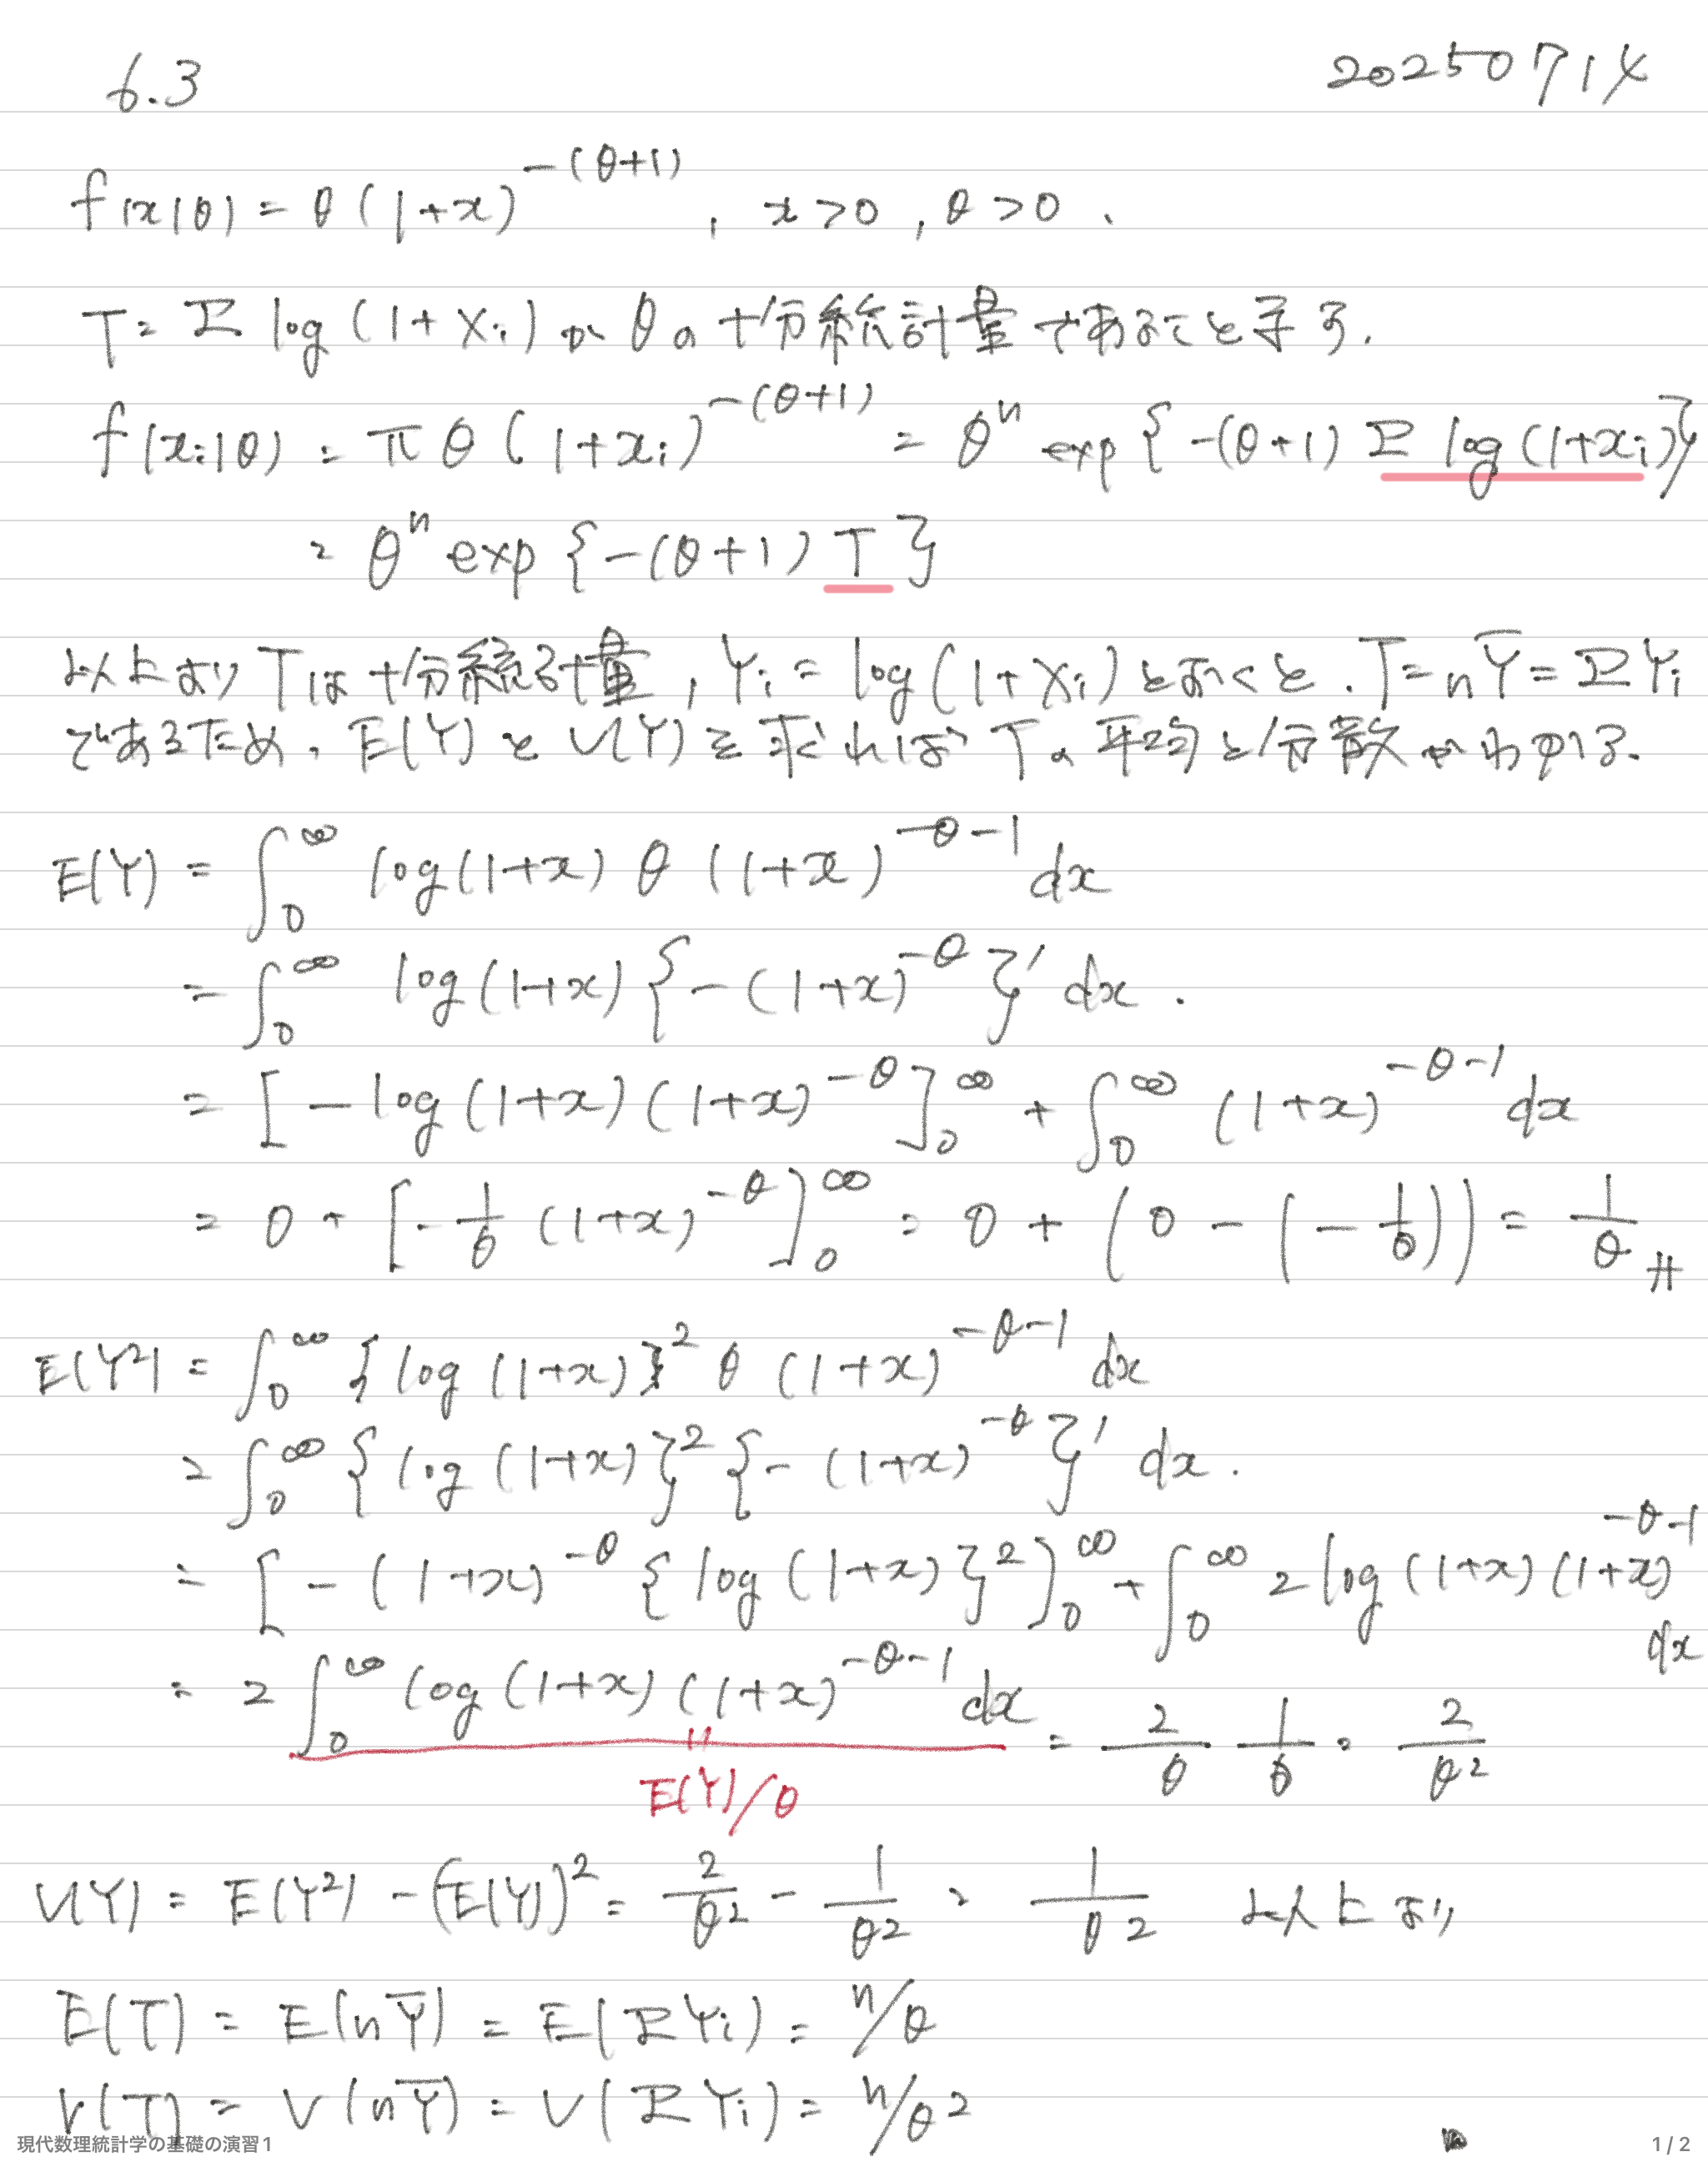 6.3 20250714
f(x|θ) = θ(1+x)^{-(θ+1)}, x>0, θ>0.
T = Σ log(1+Xi) が θの十分統計量であることを示す.
f(xi|θ) = π θ(1+xi)^{-(θ+1)} = θ^n exp{-(θ+1) Σ log(1+xi)}
= θ^n exp{-(θ+1) T}
以上より Tは十分統計量, Yi = log(1+Xi) とおくと. T = nȲ = ΣYi
であるため, E(Y) と V(Y) を求めれば Tの平均と分散がわかる.
E(Y) = ∫_0^∞ log(1+x) θ (1+x)^{-θ-1} dx
= ∫_0^∞ log(1+x) {-(1+x)^{-θ}}' dx.
= [-log(1+x)(1+x)^{-θ}]_0^∞ + ∫_0^∞ (1+x)^{-θ-1} dx
= 0 + [-1/θ (1+x)^{-θ}]_0^∞ = 0 + (0 - (-1/θ)) = 1/θ #
E(Y²) = ∫_0^∞ {log(1+x)}² θ (1+x)^{-θ-1} dx
= ∫_0^∞ {log(1+x)}² {-(1+x)^{-θ}}' dx.
= [-(1+x)^{-θ} {log(1+x)}²]_0^∞ + ∫_0^∞ 2 log(1+x)(1+x)^{-θ-1} dx
= 2 ∫_0^∞ log(1+x)(1+x)^{-θ-1} dx = 2/θ 1/θ = 2/θ²
E(Y)/θ
V(Y) = E(Y²) - (E(Y))² = 2/θ² - 1/θ² = 1/θ² 以上より
E(T) = E(nȲ) = E(ΣYi) = n/θ
V(T) = V(nȲ) = V(ΣYi) = n/θ²
現代数理統計学の基礎の演習1 1 / 2